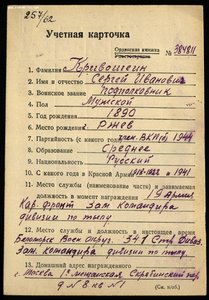 257/62
Учетная карточка
Орденская книжка № 384811
1. Фамилия Кривошеин
2. Имя и отчество Сергей Иванович
3. Воинское звание Подполковник
4. Пол Мужской
5. Год рождения 1890
6. Место рождения Ржев
7. Партийность (с какого года) член ВКП(б) 1944
8. Образование Среднее
9. Национальность Русский
10. С какого года в Красной Армии 1918-1922 и 1941
11. Место службы (наименование части) и занимаемая
должность в момент награждения 19 армия
Кар. Фронт Зам. Командира
дивизии по тылу
12. Место службы и должность в настоящее время
Военн. Округ. 347 Стр. Дивиз.
Зам. командира дивизии по тылу.
13. Домашний адрес награжденного
г. Москва 1-я Мещанская пер.
д № 8 кв № 1